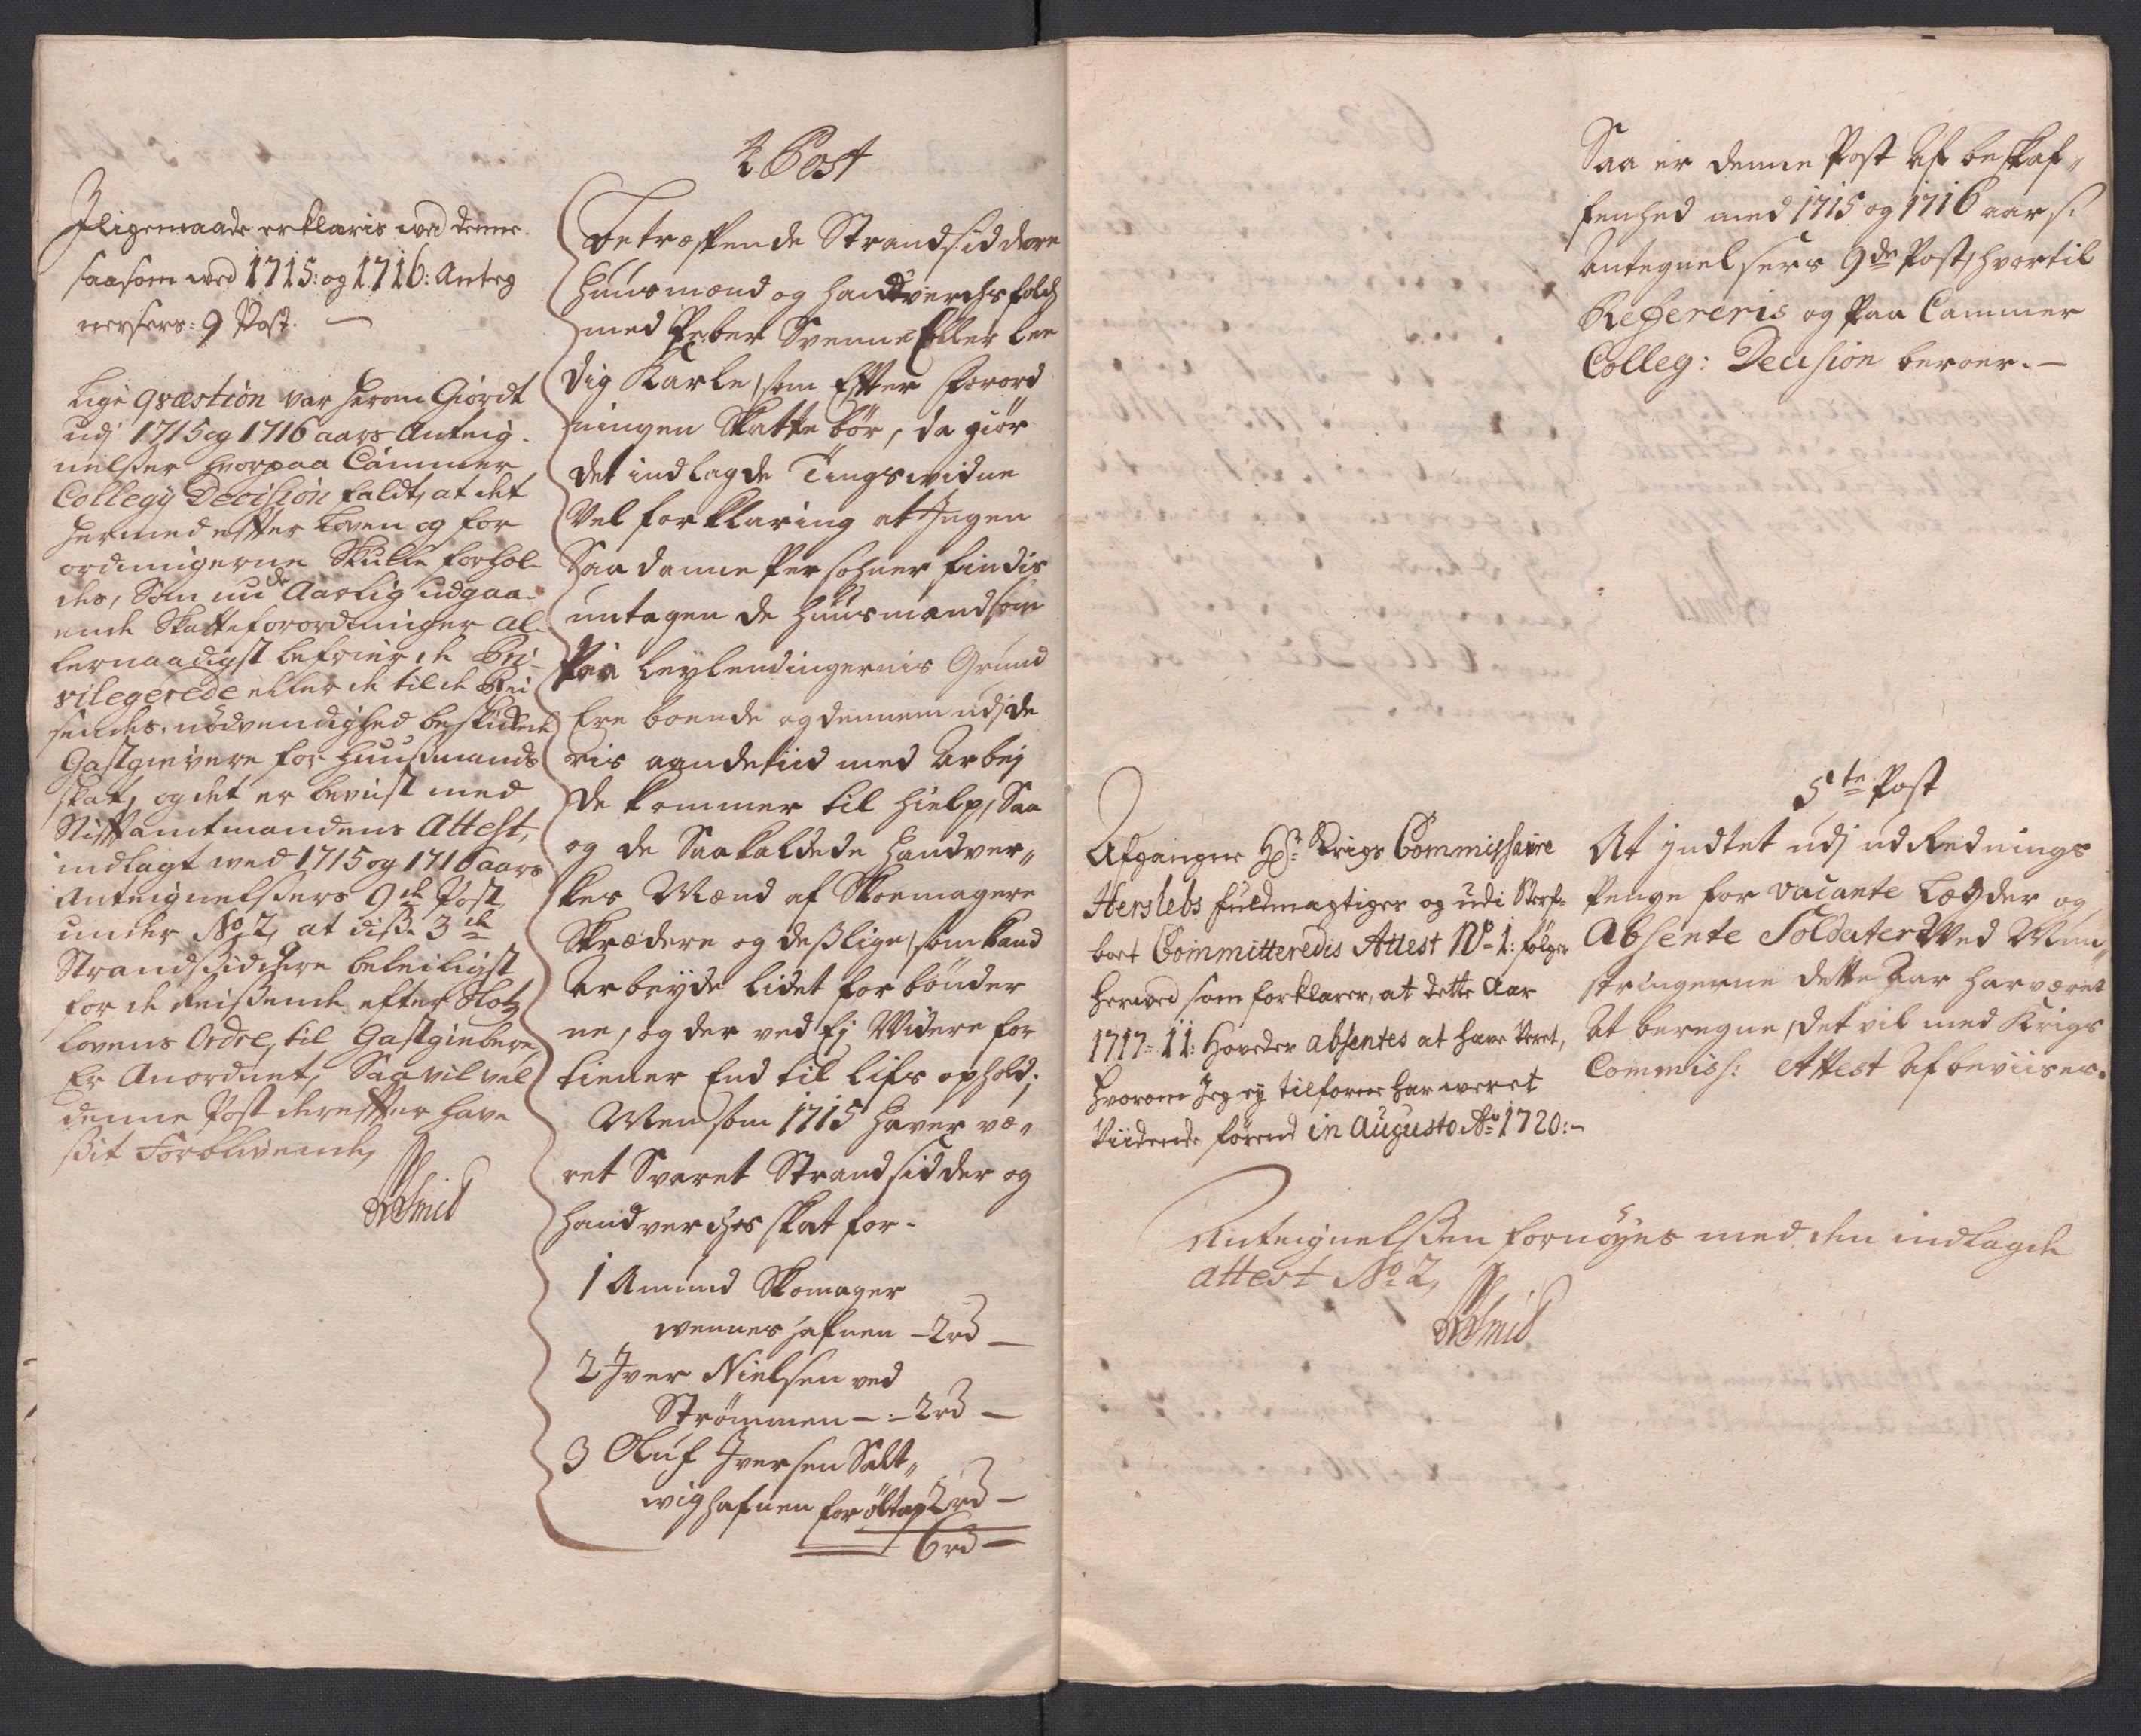 4 Post
Jligemaade erklaris wed denne
saasom wed 1715: og 1716: Anteg
nersers: 9 Post. —
Lige qvæstion var herom Giordt
udj 1715 og 1716 aars Anteig-
nelßer hvorpaa Cammer
Collegy Decision faldt, at det
hermed effter Loven og for
ordningerne skulle forhol-
des, Som nu de Aarlig udgaa-
ende Skatteforordninger al-
lernaadigst befrier de Pri-
vilegerede eller de til de Rei-
sendes nødvendighed beskickede
Gastgievere for Huusmands
skat, og det er beviist med
Stifftamtmandens Attest,
indlagt wed 1715 og 1716 aars
Anteignelßers 9de Post
under No 2, at diße 3de
Strandsiddere beleiligst
for de Reißende efter Slotz
Lovens Ordre, til Gastgiebere
Er Anordnet, Saa vil vel
denne Post dereffter have
sit Forblivende,
Smid
Betreffende Strandsiddere
Huusmænd og handverchsfolch
med Peber Svenne Eller lee
dig Karle, som Effter Forord
ningen Skatte bør, da giør
det indlagde Tingswidne
Vel forklaring at Ingen
Saadanne Persohner findis
untagen de huusmænd som
Paa Leylendingernis Grund
Ere boende og dennem udj de
ris aandetiid med Arbej
de kommer til hielp, Saa
og de Saakaldede Handver„
kes Mænd af Skoemagere
Skrædere og deßlige, som kand
Arbeyde lidet for bønder
ne, og der ved Ej Widere for
tiener End til lifs ophold;
Men som 1715 haver væ„
ret Svaret Strandsidder og
handverches skat for-
1 Amund Skomager
wennes hafnen – 2rd —
2 Iver Nielsen ved
Strømmen — : – 2rd —
3 Oluf Iversen Salt„
wighafnen for øltap 2rd —
6rd —
Saa er denne Post Af beskaf„
fenhed med 1715 og 1716 aars
Antegnelsers 9de Post, hvortil
Refereris og Paa Cammer
Colleg: Decision beroer. —
5te Post
Afgangne Hr: Krigs Commissaire
Herslebs fuldmægtiger og udi Sterf-
boet Committeredis Attest No 1: følger
herwed som forklarer, at dette Aar
1717 = 11: Hoveder absentes at have veret,
hvorom Jeg ey tilforne har weret
Viidende førend in Augusto Ao 1720: –
At jndtet udj udRednings
Penge for vacante Lægder og
Absente Soldater Wed Mun„
stringerne dette Aar har været
At beregne, det vil med Krigs
Commiss: Attest Af beviises.
Anteignelßen fornøyes med den indlagde
Attest No 2,
Smid